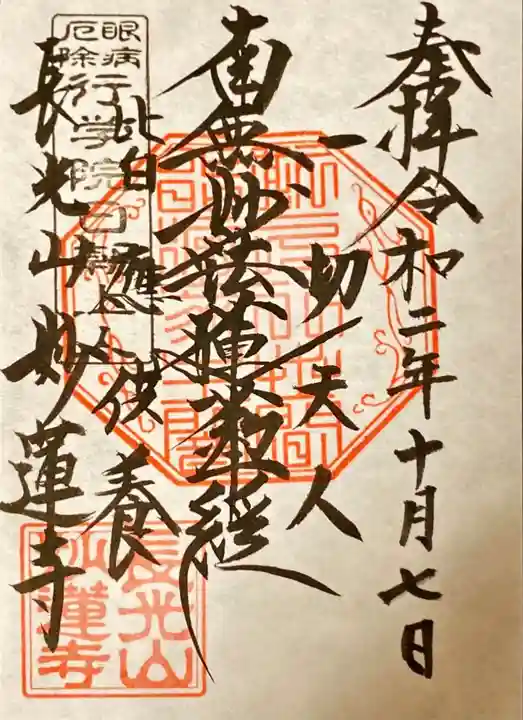 奉拝令和二年十月七日
一切天人
南無妙法蓮華経
皆應供養
眼病
厄除
行学院日朝上人
長光山妙蓮寺
長光山
妙蓮寺